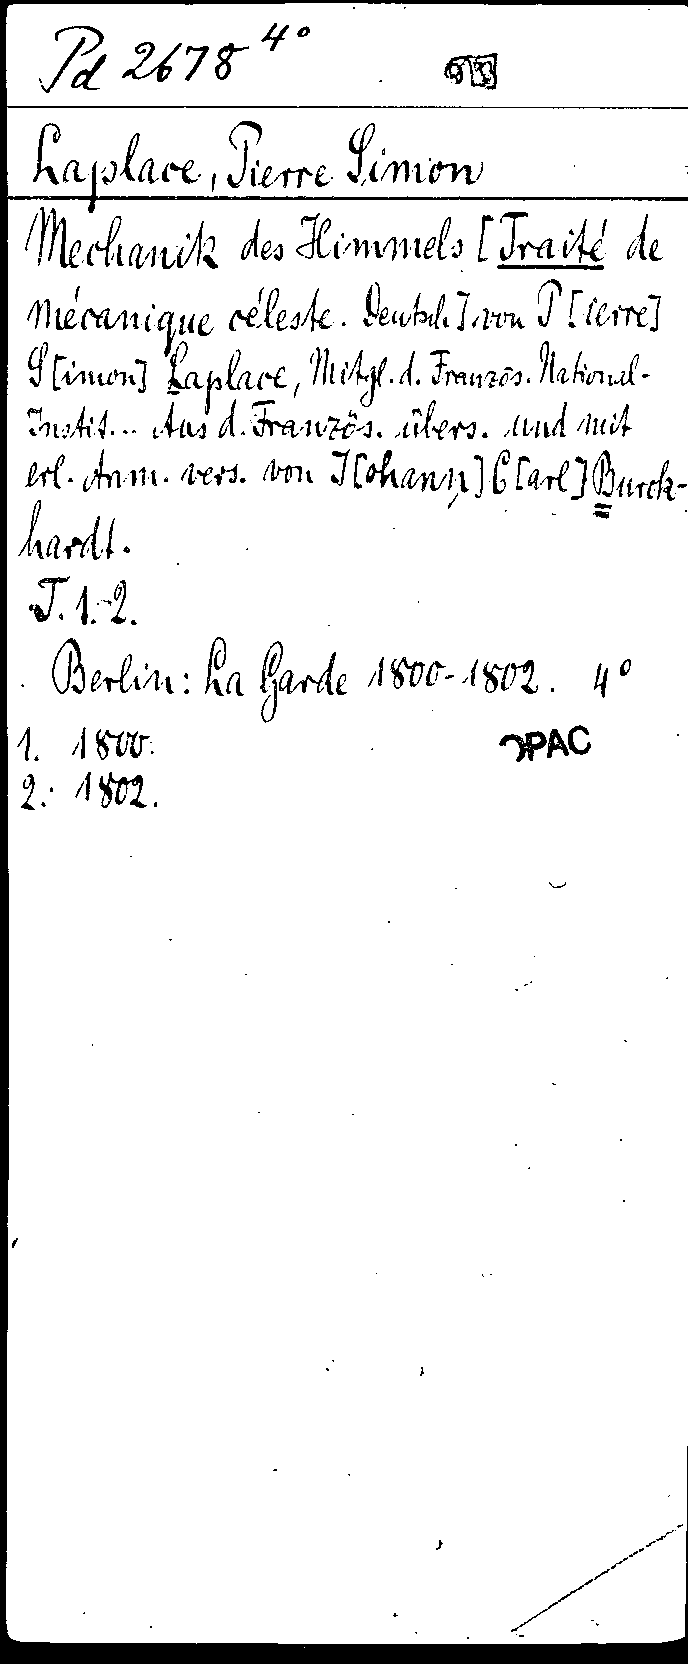 Pd 2678 4°
Laplace, Pierre Simon
Mechanik des Himmels [Traité de
mécanique céleste. Deutsch] von P[ierre]
S[imon] Laplace, Mitgl. d. Französ. National-
Instit... Aus d. Französ. übers. und mit
erl. Anm. vers. von J[ohann] C[arl] Burck-
hardt.
T. 1.-2.
Berlin: La Garde 1800-1802. 4°
1. 1800. OPAC
2. 1802.